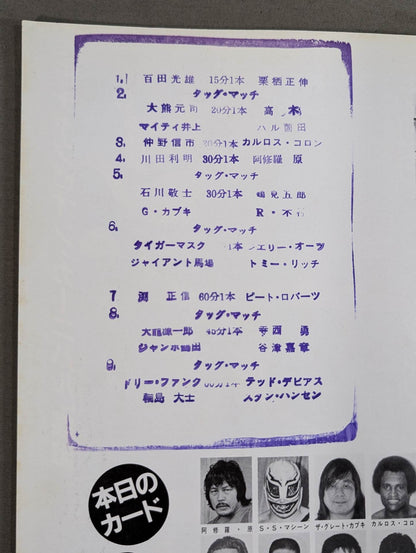 1. 百田光雄 15分1本 栗栖正伸
2. タッグ・マッチ
大熊元司 20分1本 高 木
マイティ井上 ハル薗田
3. 仲野信市 20分1本 カルロス・コロン
4. 川田利明 30分1本 阿修羅 原
5. タッグ・マッチ
石川敬士 30分1本 鶴見五郎
G・カブキ R・不
6. タッグ・マッチ
タイガーマスク 1本 ェリー・オーツ
ジャイアント馬場 トミー・リッチ
7 渕 正信 60分1本 ピート・ロバーツ
8. タッグ・マッチ
天龍源一郎 45分1本 寺西 勇
ジャンボ鶴田 谷津嘉章
9. タッグ・マッチ
ドリー・ファンク 60分1本 テッド・デビアス
輪島 大士 スタン・ハンセン
本日の
カード
阿修羅・原 S・S・マシーン ザ・グレート・カブキ カルロス・コロ